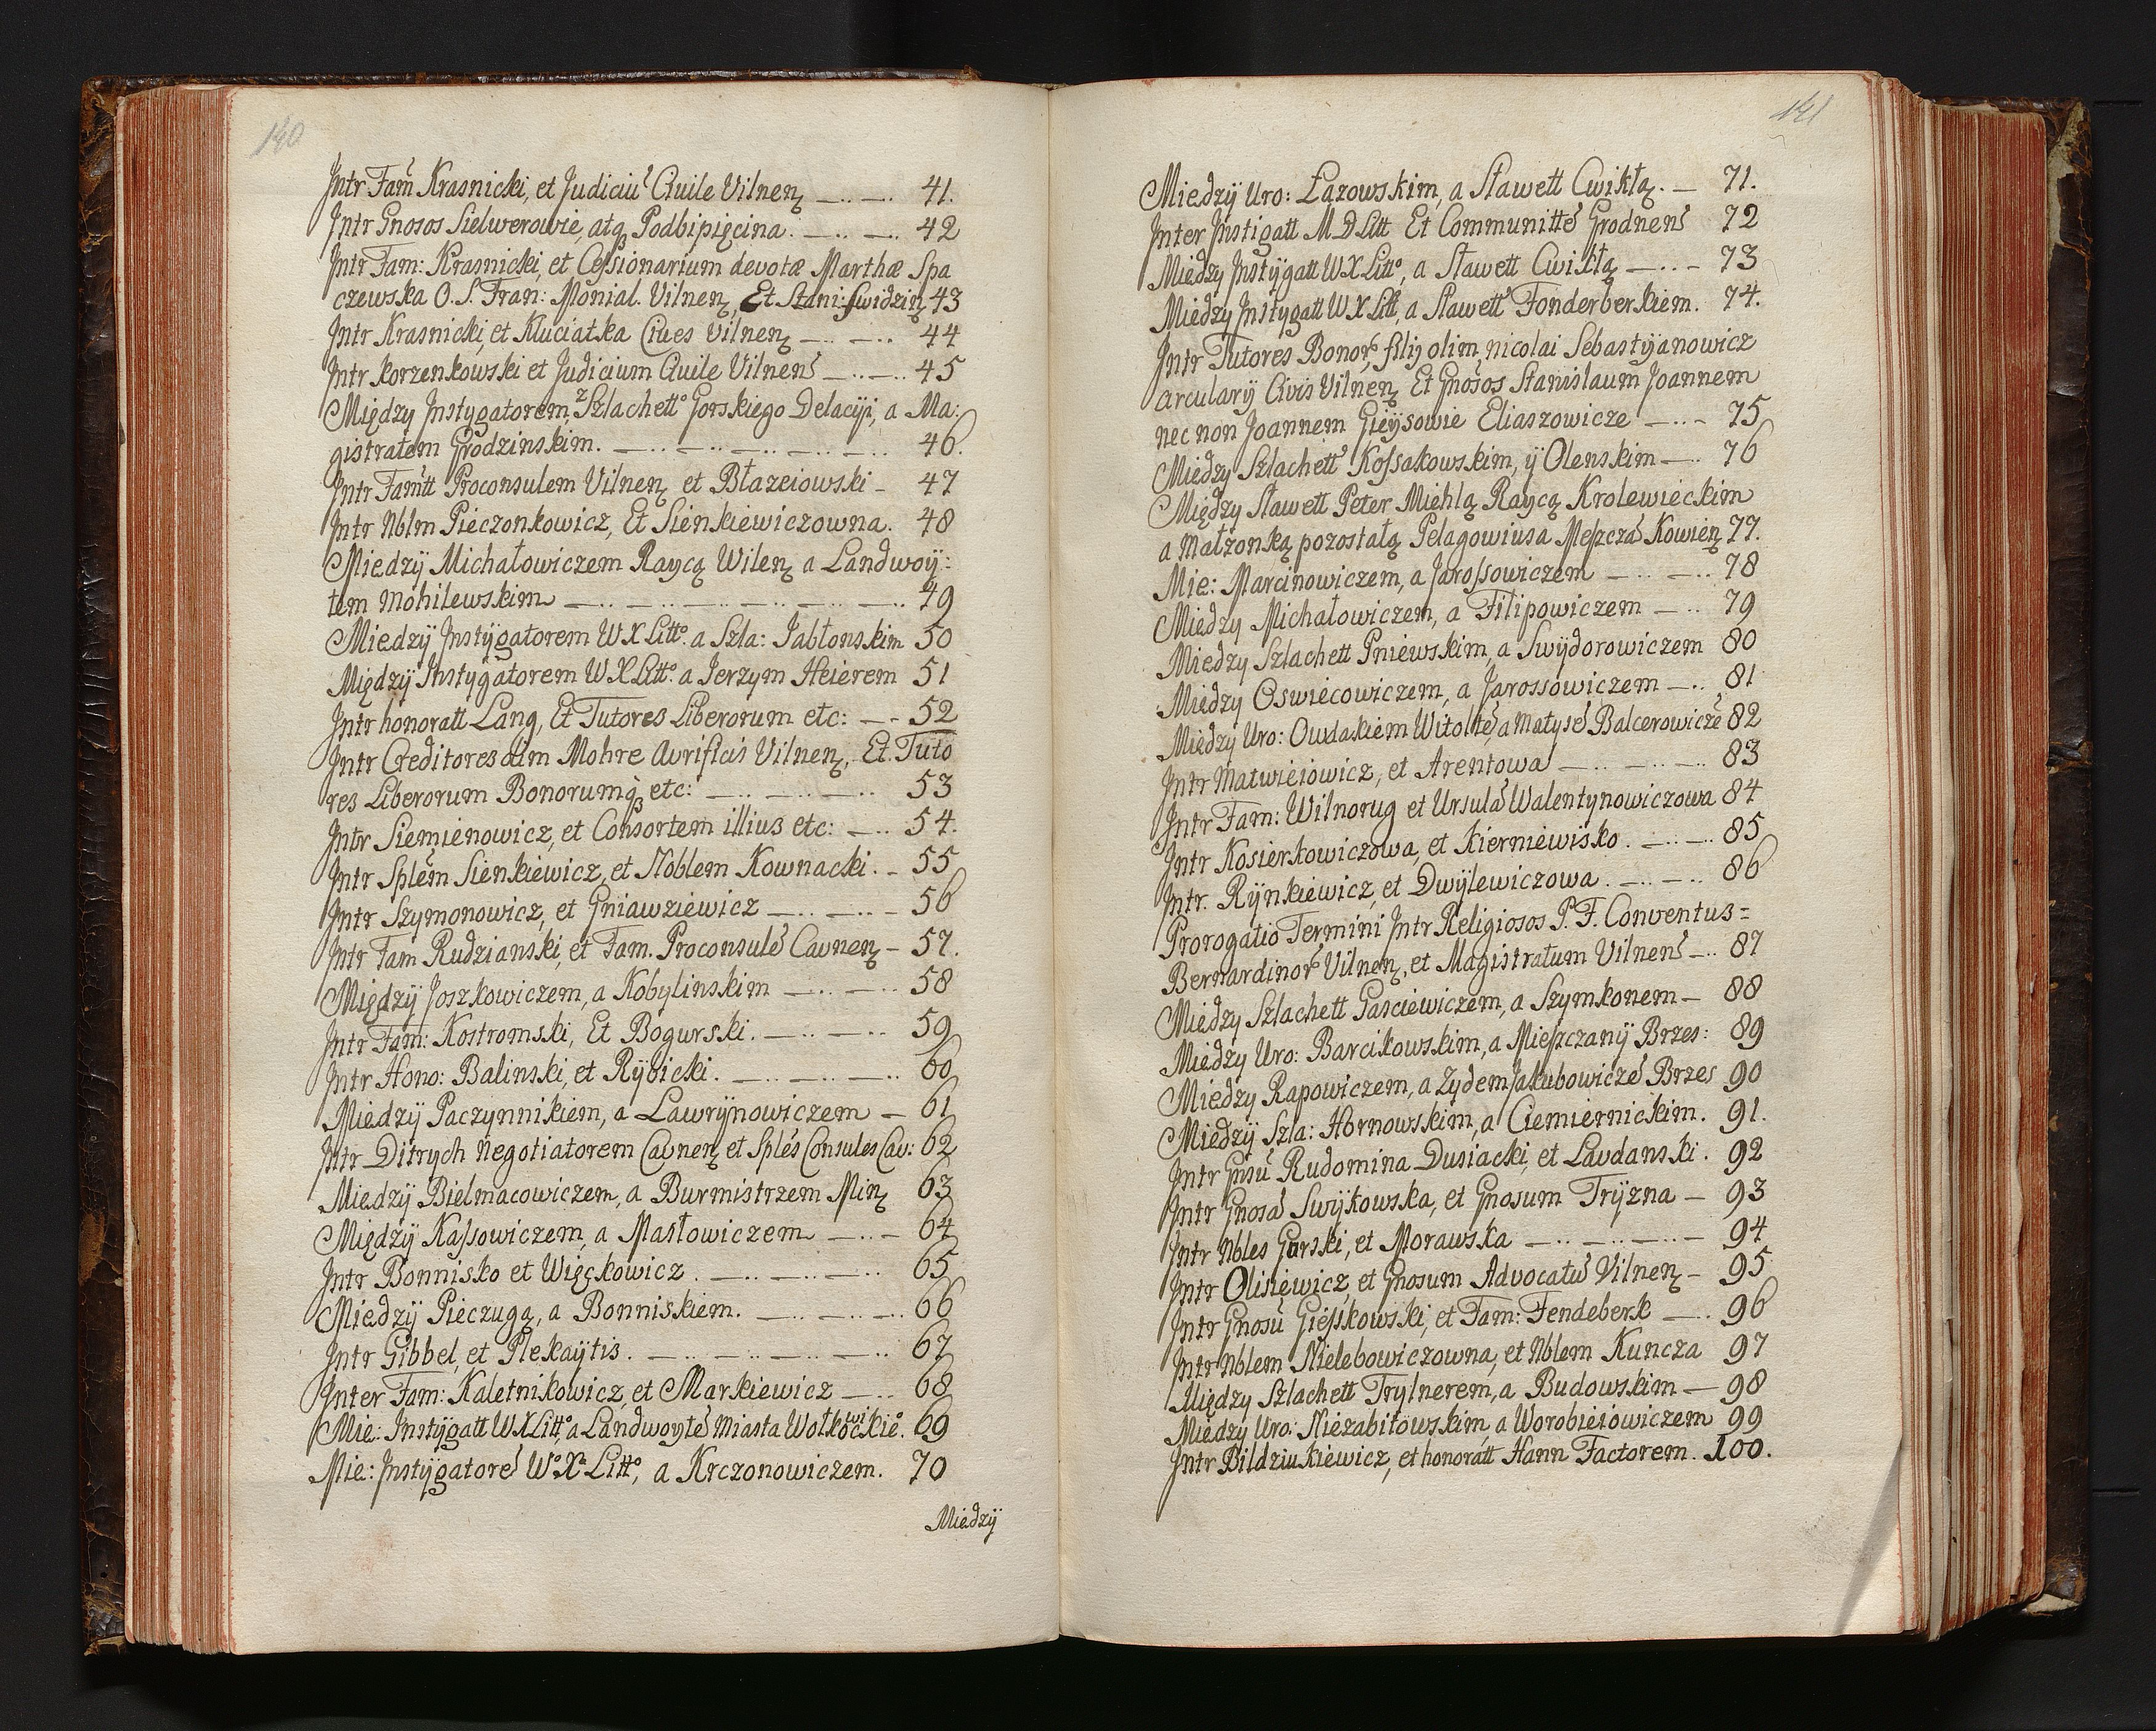 140
Intr Fam̃ Krasnicki, et Judiciũ Ciuile Vilnen̨ —..—. 41.
Intr Gnosos Sielwerowie, atq̨ Podbipięcina. —..—.. 42
Intr Fam: Krasnicki, et Cessionarium devotæ Marthæ Spa
czewska O. S. Fran: Monial. Vilnen̨, Et Stani: Swidzin̨ 43
Intr Krasnicki, et Kuciatka Ciues Vilnen̨ —..—.. 44
Intr Korzenkowski et Judicium Ciuile Vilneñ —..—.. 45
Między Instygatorem, z Szlachett° Gorskiego Delacÿi, a Ma:
gistratem Grodzinskim. —..—..—..—..—.. 46.
Intr Fam̃tt Proconsulem Vilnen̨ et Błazeiowski - 47
Intr Nblm Pieczonkowicz, Et Sienkiewiczowna. 48
Miedzÿ Michałowiczem Raycą Wilen̨ a Landwoÿ:
tem Mohilewskim —..—..—..—..—.. 49
Miedzÿ Instÿgatorem W X Litt° a Szla: Jabłonskim 50
Międzÿ Instÿgatorem W X Litt° a Jerzym Heierem 51
Intr honoratt Lang, Et Tutores Liberorum etc: — - 52
Intr Creditores olim Mohre Avrificis Vilnen̨, Et Tuto
res Liberorum Bonorumq̨ etc: —..—..—.. 53
Intr Siemienowicz, et Consortem illius etc: —.. 54.
Intr Splẽm Sienkiewicz, et Noblem Kownacki. - 55
Intr Szymonowicz, et Gniawziewicz —..—..- 56
Intr Fam Rudzianski, et Fam. Proconsulẽ Caunen̨ - 57.
Międzÿ Joszkowiczem, a Kobylinskim —..—.. 58
Intr Fam: Kostromski, Et Bogurski. —..—.. 59
Intr Hono: Balinski, et Rÿbicki. —..—..—.. 60
Miedzÿ Paczynnikiem, a Lawrÿnowiczem — 61
Intr Ditrych Negotiatorem Caunen̨ et Splẽs Consules Cau: 62
Miedzÿ Bielmacowiczem, a Burmistrzem Min̨ 63
Międzÿ Kassowiczem, a Masłowiczem —..- 64
Intr Bonnisko et Więckowicz. —..—..—.. 65
Miedzÿ Pieczugą, a Bonniskiem. —..—..—.. 66
Intr Gibbel, et Plekaÿtis. —..—..—..—.. 67
Inter Fam: Kaletnikowicz, et Markiewicz —.. 68
Mie: Instÿgatt W X Litt°, a Landwoytẽ Miasta Wołkowickie°. 69
Mie: Instÿgatorẽ W° X° Litt°, a Krczonowiczem. 70
Miedzÿ
141
Miedzÿ Uro: Łazowskim, a Sławett Cwikłą. — 71.
Inter Instigatt M D Litt Et Communittẽ Grodneñ 72
Miedzy Instÿgatt W X Litt°, a Sławett Cwikłą —..- 73
Miedzy Instygatt W X Litt, a Sławett° Fonderberkiem. 74.
Intr Tutores Bonor̃, filij olim nicolai Sebastÿanowicz
arcularÿ Civis Vilnen̨ Et Gnosos Stanislaum Joannem
nec non Joannem Gieÿsowie Eliaszowicze —..- 75
Miedzy Szlachett° Kossakowskim, ÿ Olenskim —.. 76
Między Sławett Peter Miehlą Raycą Krolewieckim
a Małzonką pozostałą Pelagowiusa Meszczã Kowien̨ 77.
Mie: Marcinowiczem, a Jarossowiczem —..—.. 78
Miedzy Michałowiczem, a Filipowiczem —.. 79
Miedzy Szlachett Pniewskim, a Swÿdorowiczem 80
Miedzy Oswiecowiczem, a Jarossowiczem —.. 81
Miedzÿ Uro: Owdakiem Witoltẽ, a Matysẽ Balcerowiczẽ 82
Intr Matwieiowicz, et Arentowa —..—..—.. 83
Intr Fam: Wilnorug et Ursulã Walentynowiczowa 84
Intr Kosierkowiczowa, et Kierniewisko. —..—.. 85
Intr. Rÿnkiewicz, et Dwÿlewiczowa. —..—.. 86
Prorogatio Termini Intr Religiosos P. F. Conventus=
Bernardinor̃ Vilnen̨, et Magistratum Vilneñ —.. 87
Miedzy Szlachett Gasciewiczem, a Szymkonem — 88
Miedzy Uro: Barcikowskim, a Mieszczanÿ Brzes: 89
Miedzy Rapowiczem, a Zydem Jakubowiczẽ Brzes 90
Miedzÿ Szla: Hornowskim, a Ciemiernickim. 91.
Intr Gnsũ Rudomina Dusiacki, et Laudanski. 92
Intr Gnosã Swÿkowska, et Gnosum Trÿzna — 93
Intr Nbles Gurski, et Morawska —..—..—..- 94
Intr Olisiewicz, et Gnosum Advocatũ Vilnen̨ — 95
Intr Gnosũ Giesskowski, et Fam: Fendeberk —.. 96
Intr Nblem Nielebowiczowna, et Nblem Kuncza 97
Między Szlachett Trylnerem, a Budowskim — 98
Miedzy Uro: Niezabitowskim, a Worobieiowiczem 99
Intr Bildziukiewicz, et honoratt Hann Factorem. 100.